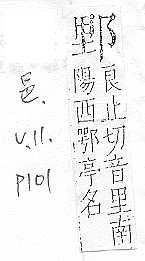 𨛋
良止切音里南
陽西鄂亭名
邑.
V.11.
P101